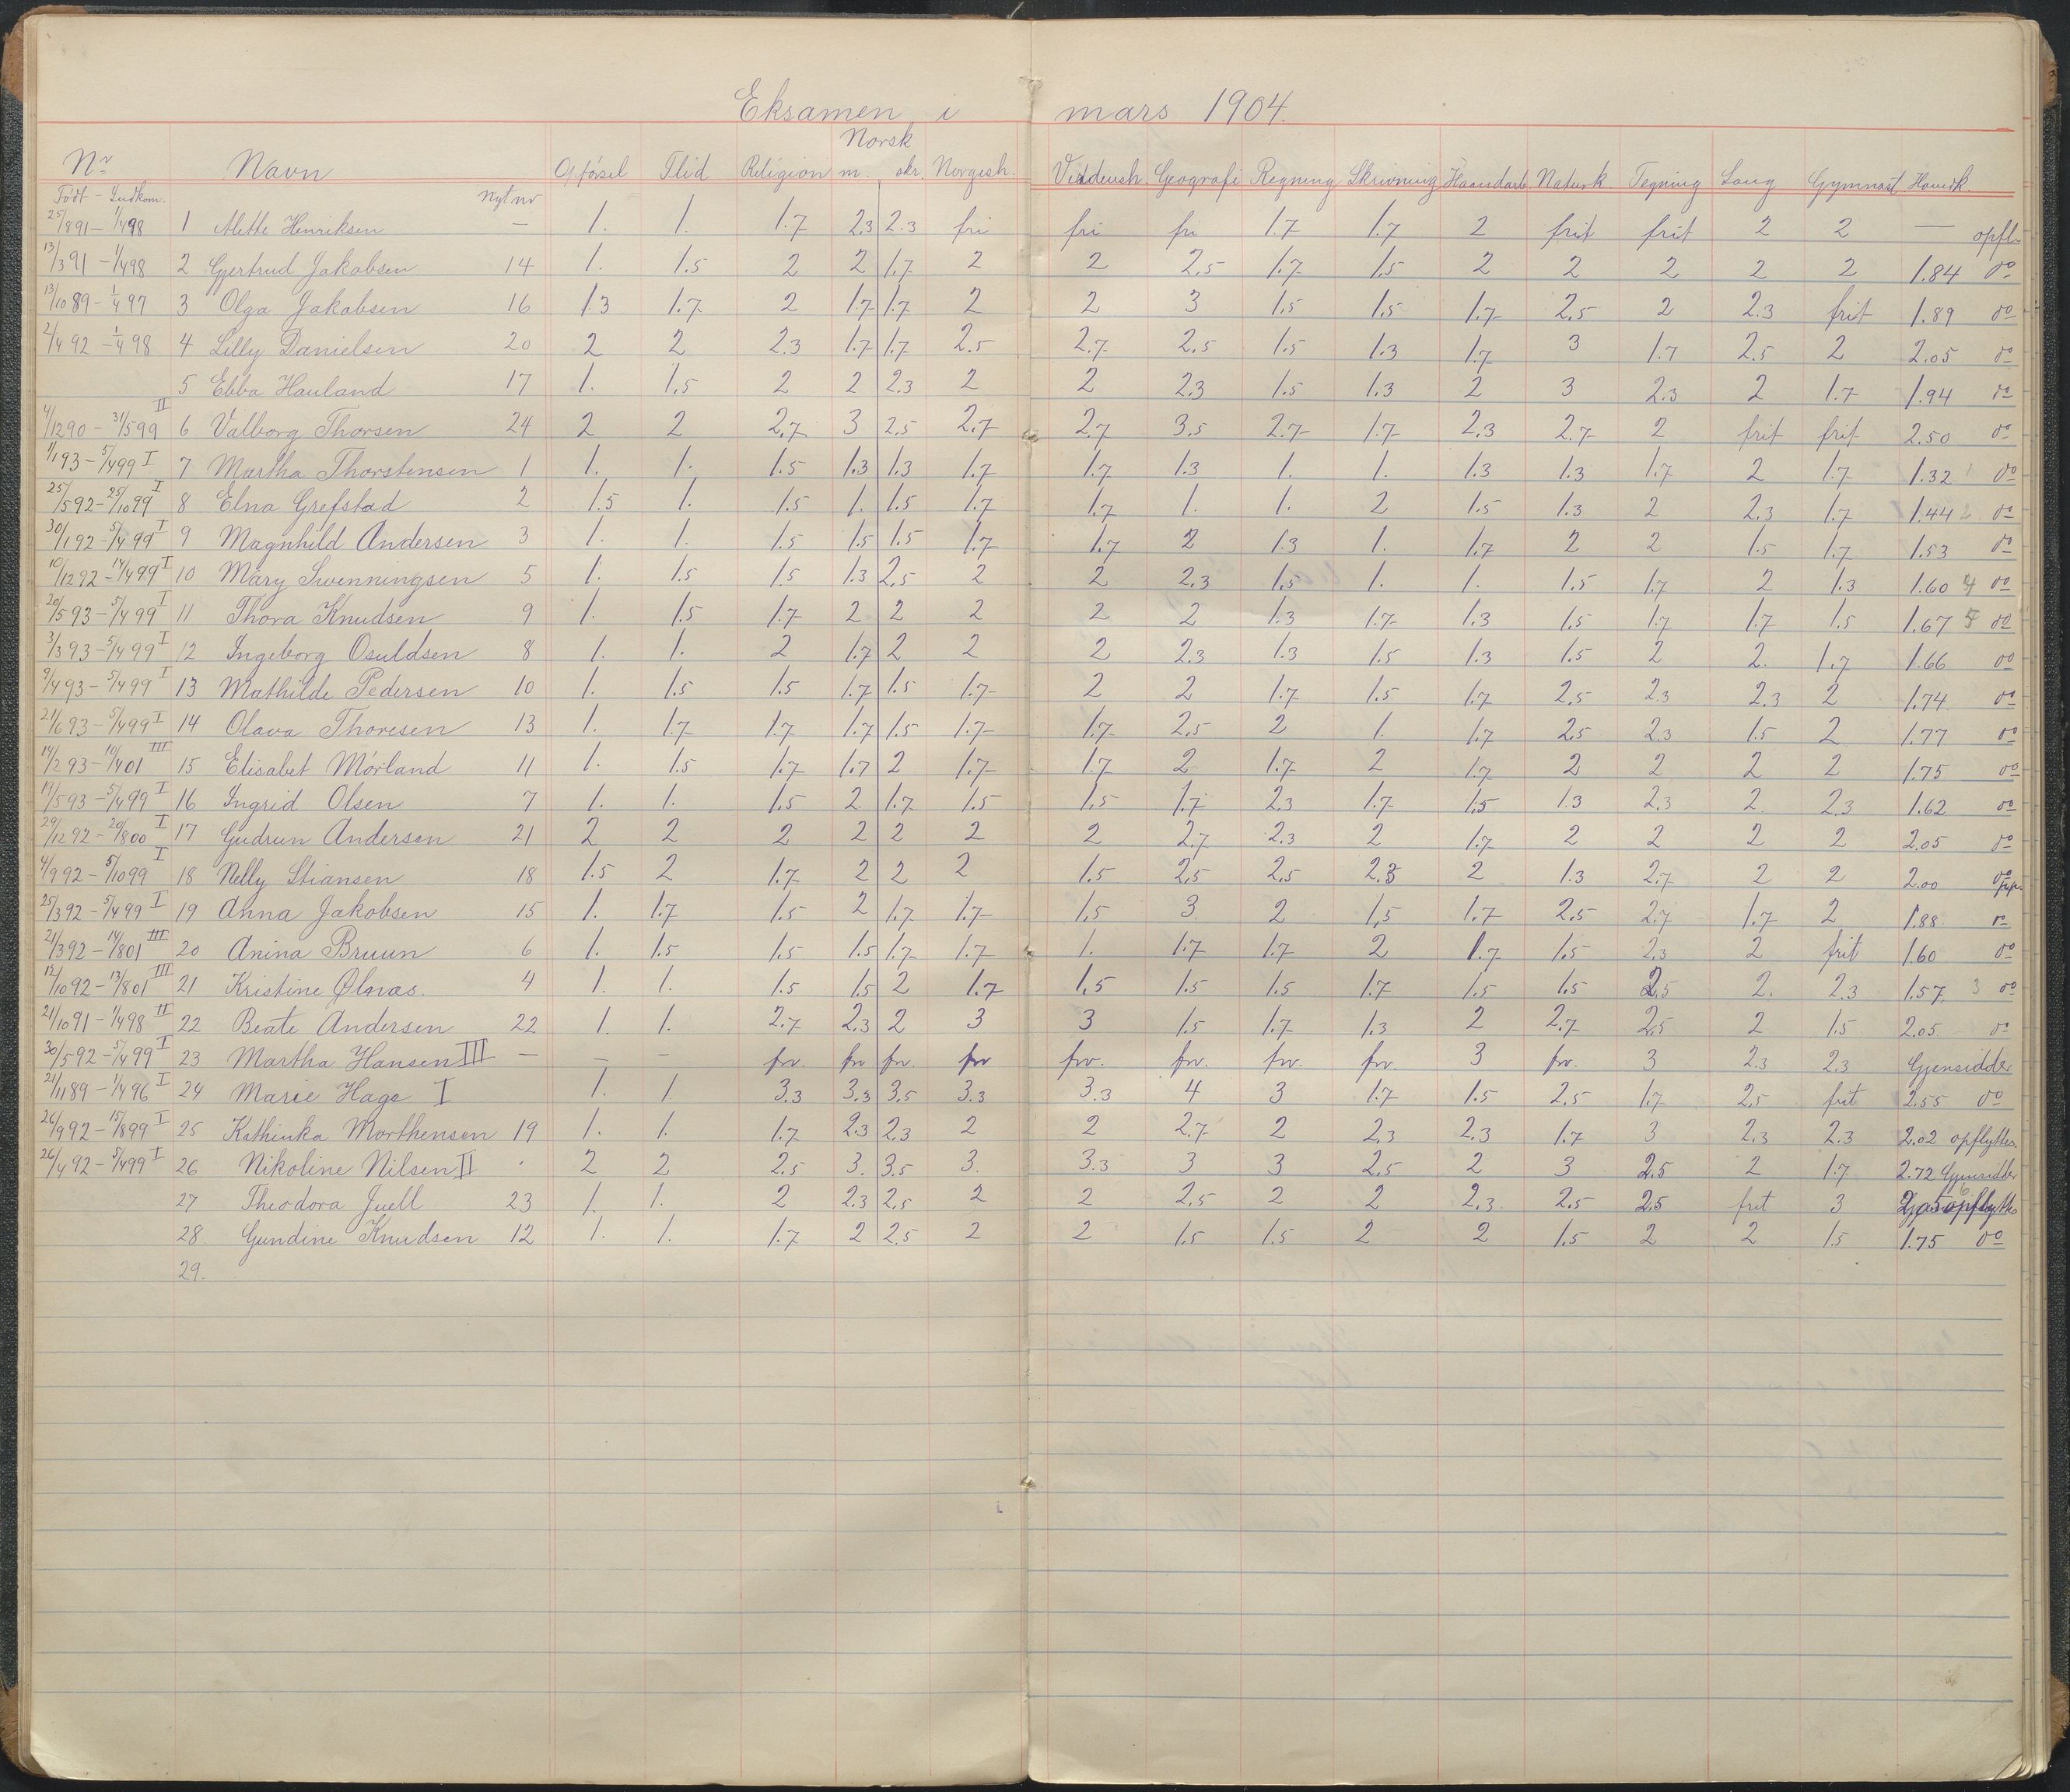 Eksamen i mars 1904.
Norsk
Nr Navn Opførsel Flid Religion m. skr. Norgesh. Verdensh. Geografi Regning Skrivning Haandarb Naturk. Tegning Sang Gymnast. Hovedk.
Født - Indkom. Nyt nr
25/8 91 - 1/4 98 1 Alette Henriksen — 1. 1. 1.7 2.3 2.3 fri fri fri 1.7 1.7 2 frit frit 2 2 — opfl.
13/3 91 - 1/4 98 2 Gjertrud Jakobsen 14 1. 1.5 2 2 1.7 2 2 2.5 1.7 1.5 2 2 2 2 2 1.84 do
13/10 89 - 1/4 97 3 Olga Jakobsen 16 1.3 1.7 2 1.7 1.7 2 2 3 1.5 1.5 1.7 2.5 2 2.3 frit 1.89 do
2/4 92 - 1/4 98 4 Lilly Danielsen 20 2 2 2.3 1.7 1.7 2.5 2.7 2.5 1.5 1.3 1.7 3 1.7 2.5 2 2.05 do
5 Ebba Hauland 17 1. 1.5 2 2 2.3 2 2 2.3 1.5 1.3 2 3 2.3 2 1.7 1.94 do
4/12 90 - 31/5 99 II 6 Valborg Thorsen 24 2 2 2.7 3 2.5 2.7 2.7 3.5 2.7 1.7 2.3 2.7 2 frit frit 2.50 do
1/1 93 - 5/4 99 I 7 Martha Thorstensen 1 1. 1. 1.5 1.3 1.3 1.7 1.7 1.3 1. 1. 1.3 1.3 1.7 2 1.7 1.32 1 do
25/5 92 - 25/10 99 I 8 Elna Grefstad 2 1.5 1. 1.5 1. 1.5 1.7 1.7 1. 1. 2 1.5 1.3 2 2.3 1.7 1.44 2 do
30/1 92 - 5/4 99 I 9 Magnhild Andersen 3 1. 1. 1.5 1.5 1.5 1.7 1.7 2 1.3 1. 1.7 2 2 1.5 1.7 1.53 do
10/12 92 - 14/4 99 I 10 Mary Swenningsen 5 1. 1.5 1.5 1.3 2.5 2 2 2.3 1.5 1. 1. 1.5 1.7 2 1.3 1.60 4 do
20/5 93 - 5/4 99 I 11 Thora Knudsen 9 1. 1.5 1.7 2 2 2 2 2 1.3 1.7 1.3 1.5 1.7 1.7 1.5 1.67 5 do
3/3 93 - 5/4 99 I 12 Ingeborg Osuldsen 8 1. 1. 2 1.7 2 2 2 2.3 1.3 1.5 1.3 1.5 2 2. 1.7 1.66 do
9/4 93 - 5/4 99 I 13 Mathilde Pedersen 10 1. 1.5 1.5 1.7 1.5 1.7 2 2 1.7 1.5 1.7 2.5 2.3 2.3 2 1.74 do
21/6 93 - 5/4 99 I 14 Olava Thoresen 13 1. 1.7 1.7 1.7 1.5 1.7 1.7 2.5 2 1. 1.7 2.5 2.3 1.5 2 1.77 do
14/2 93 - 10/4 01 III 15 Elisabet Mørland 11 1. 1.5 1.7 1.7 2 1.7 1.7 2 1.7 2 1.7 2 2 2 2 1.75 do
19/5 93 - 5/4 99 I 16 Ingrid Olsen 7 1. 1. 1.5 2 1.7 1.5 1.5 1.7 2.3 1.7 1.5 1.3 2.3 2 2.3 1.62 do
29/12 92 - 20/8 00 I 17 Gudrun Andersen 21 2 2 2 2 2 2 2 2.7 2.3 2 1.7 2 2 2 2 2.05 do
4/9 92 - 5/10 99 I 18 Nelly Stiansen 18 1.5 2 1.7 2 2 2 1.5 2.5 2.5 2.3 2 1.3 2.7 2 2 2.00 do
25/3 92 - 5/4 99 I 19 Anna Jakobsen 15 1. 1.7 1.5 2 1.7 1.7 1.5 3 2 1.5 1.7 2.5 2.7 1.7 2 1.88 do
21/3 92 - 14/8 01 III 20 Anina Bruun 6 1. 1.5 1.5 1.5 1.7 1.7 1. 1.7 1.7 2 1.7 1.5 2.3 2 frit 1.60 do
12/10 92 - 13/8 01 III 21 Kristine 4 1. 1. 1.5 1.5 2 1.7 1.5 1.5 1.5 1.7 1.5 1.5 2.5 2. 2.3 1.57 3 do
21/10 91 - 1/4 98 II 22 Beate Andersen 22 1. 1. 2.7 2.3 2 3 3 1.5 1.7 1.3 2 2.7 2.5 2 1.5 2.05 do
30/5 92 - 5/4 99 I 23 Martha Hansen III — — — frv. frv frv. frv frv. frv. frv. frv. 3 frv. 3 2.3 2.3 Gjensidder
21/11 89 - 1/4 96 I 24 Marie Hage I 1. 1. 3.3 3.3 3.5 3.3 3.3 4 3 1.7 1.5 2.5 1.7 2.5 frit 2.55 do
26/9 92 - 15/8 99 I 25 Kathinka Morthensen 19 1. 1. 1.7 2.3 2.3 2 2 2.7 2 2.3 2.3 1.7 3 2.3 2.3 2.02 opflyttes
26/4 92 - 5/4 99 I 26 Nikoline Nilsen II 2 2 2.5 3. 3.5 3. 3.3 3 3 2.5 2 3 2.5 2 1.7 2.72 Gjensidder
27 Theodora Juell 23 1. 1. 2 2.3 2.5 2 2 2.5 2 2 2.3 2.5 2.5 frit 3 opflyttes
28. Gundine Knudsen 12 1. 1. 1.7 2 2.5 2 2 1.5 1.5 2 2 1.5 2 2 1.5 1.75 do
29.